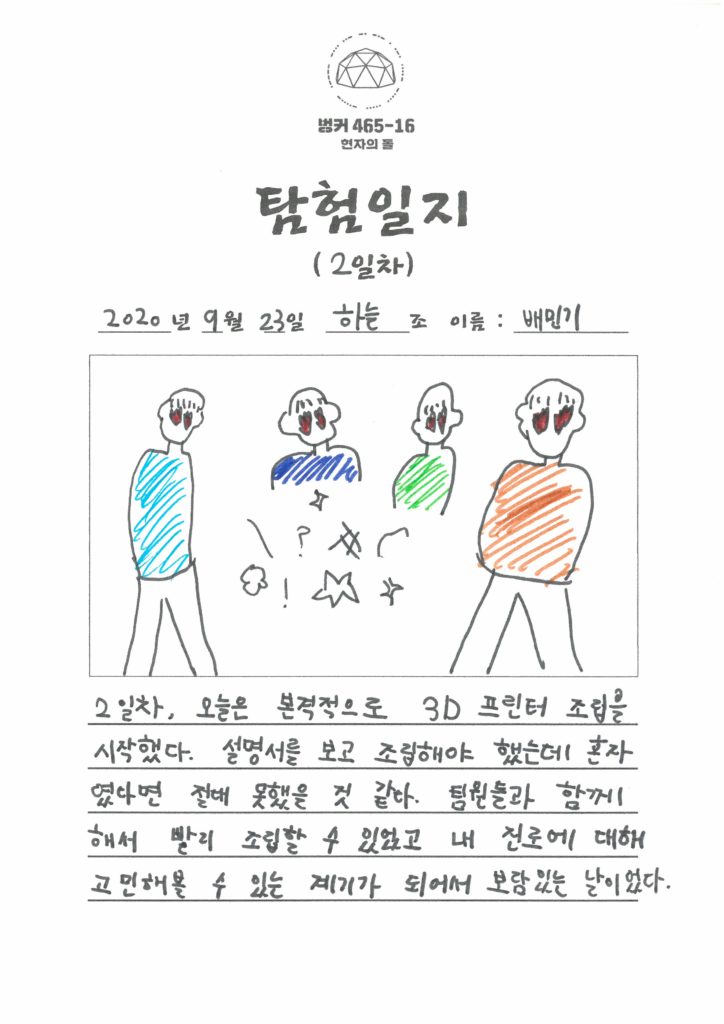 벙커 465-16
현자의 돌
탐험일지
(2일차)
2020년 9월 23일 하늘 조 이름 : 배민기
? !
2일차, 오늘은 본격적으로 3D 프린터 조립을
시작했다. 설명서를 보고 조립해야 했는데 혼자
였다면 절대 못했을 것 같다. 팀원들과 함께
해서 빨리 조립할 수 있었고 내 진로에 대해
고민해볼 수 있는 계기가 되어서 보람있는 날이었다.